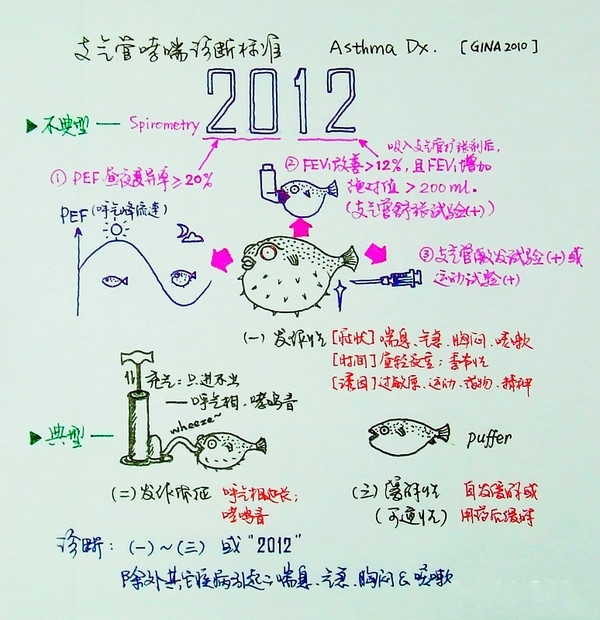 支气管哮喘诊断标准 Asthma Dx. [GINA 2010]
2012
▶不典型— Spirometry
吸入支气管扩张剂后,
① PEF昼夜变异率≥20%
② FEV₁改善>12%, 且FEV₁增加
绝对值>200ml.
(支气管舒张试验(+))
PEF(呼气峰流速)
③支气管激发试验(+)或
运动试验(+)
(一)发作性 [症状]喘息、气急、胸闷、咳嗽
[时间]昼轻夜重;季节性
[诱因]过敏原、运动、药物、精神
充气:只进不出
—呼气相、哮鸣音
wheeze~
▶典型—
puffer
(二)发作体征 呼气相延长;
哮鸣音
(三)缓解性 自发缓解或
(可逆性) 用药后缓解
诊断:(一)~(三) 或"2012"
除外其它疾病引起之喘息、气急、胸闷&咳嗽